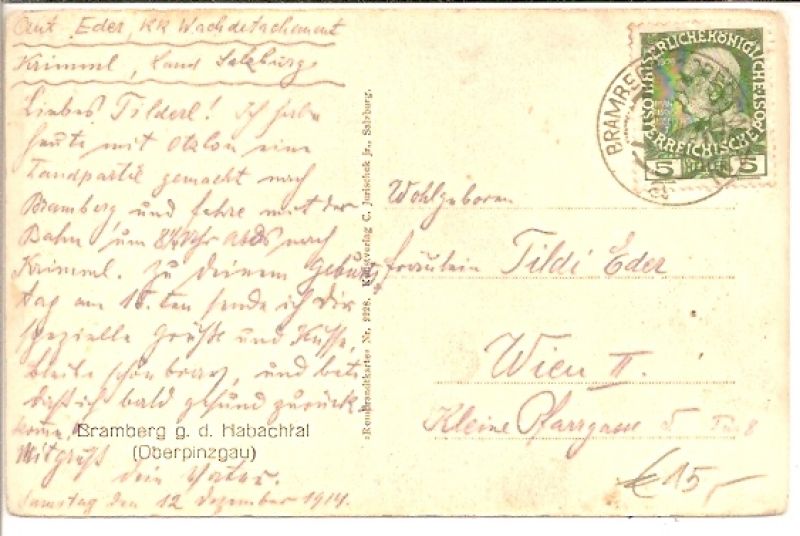 Ant. Eder, KK Wachdetachement
Krimml, Land Salzburg
Liebes Tilderl! Ich habe
heute mit eine
Landpartie gemacht nach
Bramberg und fahre mit der
Bahn um Uhr abds nach
Krimml. Zu deinem Geburts
tag am 15.ten sende ich dir
spezielle Grüße und Küsse,
bleibe schön brav, und bete
daß ich bald gesund zurück
komme,
Mit Gruß
dein Vater.
Samstag den 12 Dezember 1914.
Bramberg g. d. Habachtal
(Oberpinzgau)
»Rembrandtkarte« Nr. 9228. Kunstverlag C. Jurischek jr., Salzburg.
KAISERLICHE KÖNIGLICHE
ÖSTERREICHISCHE POST
5 HELLER 5
BRAMBERG
Wohlgeboren
Fräulein Tildi Eder
Wien II.
Kleine Pfarrgasse 5 8
€ 15,-